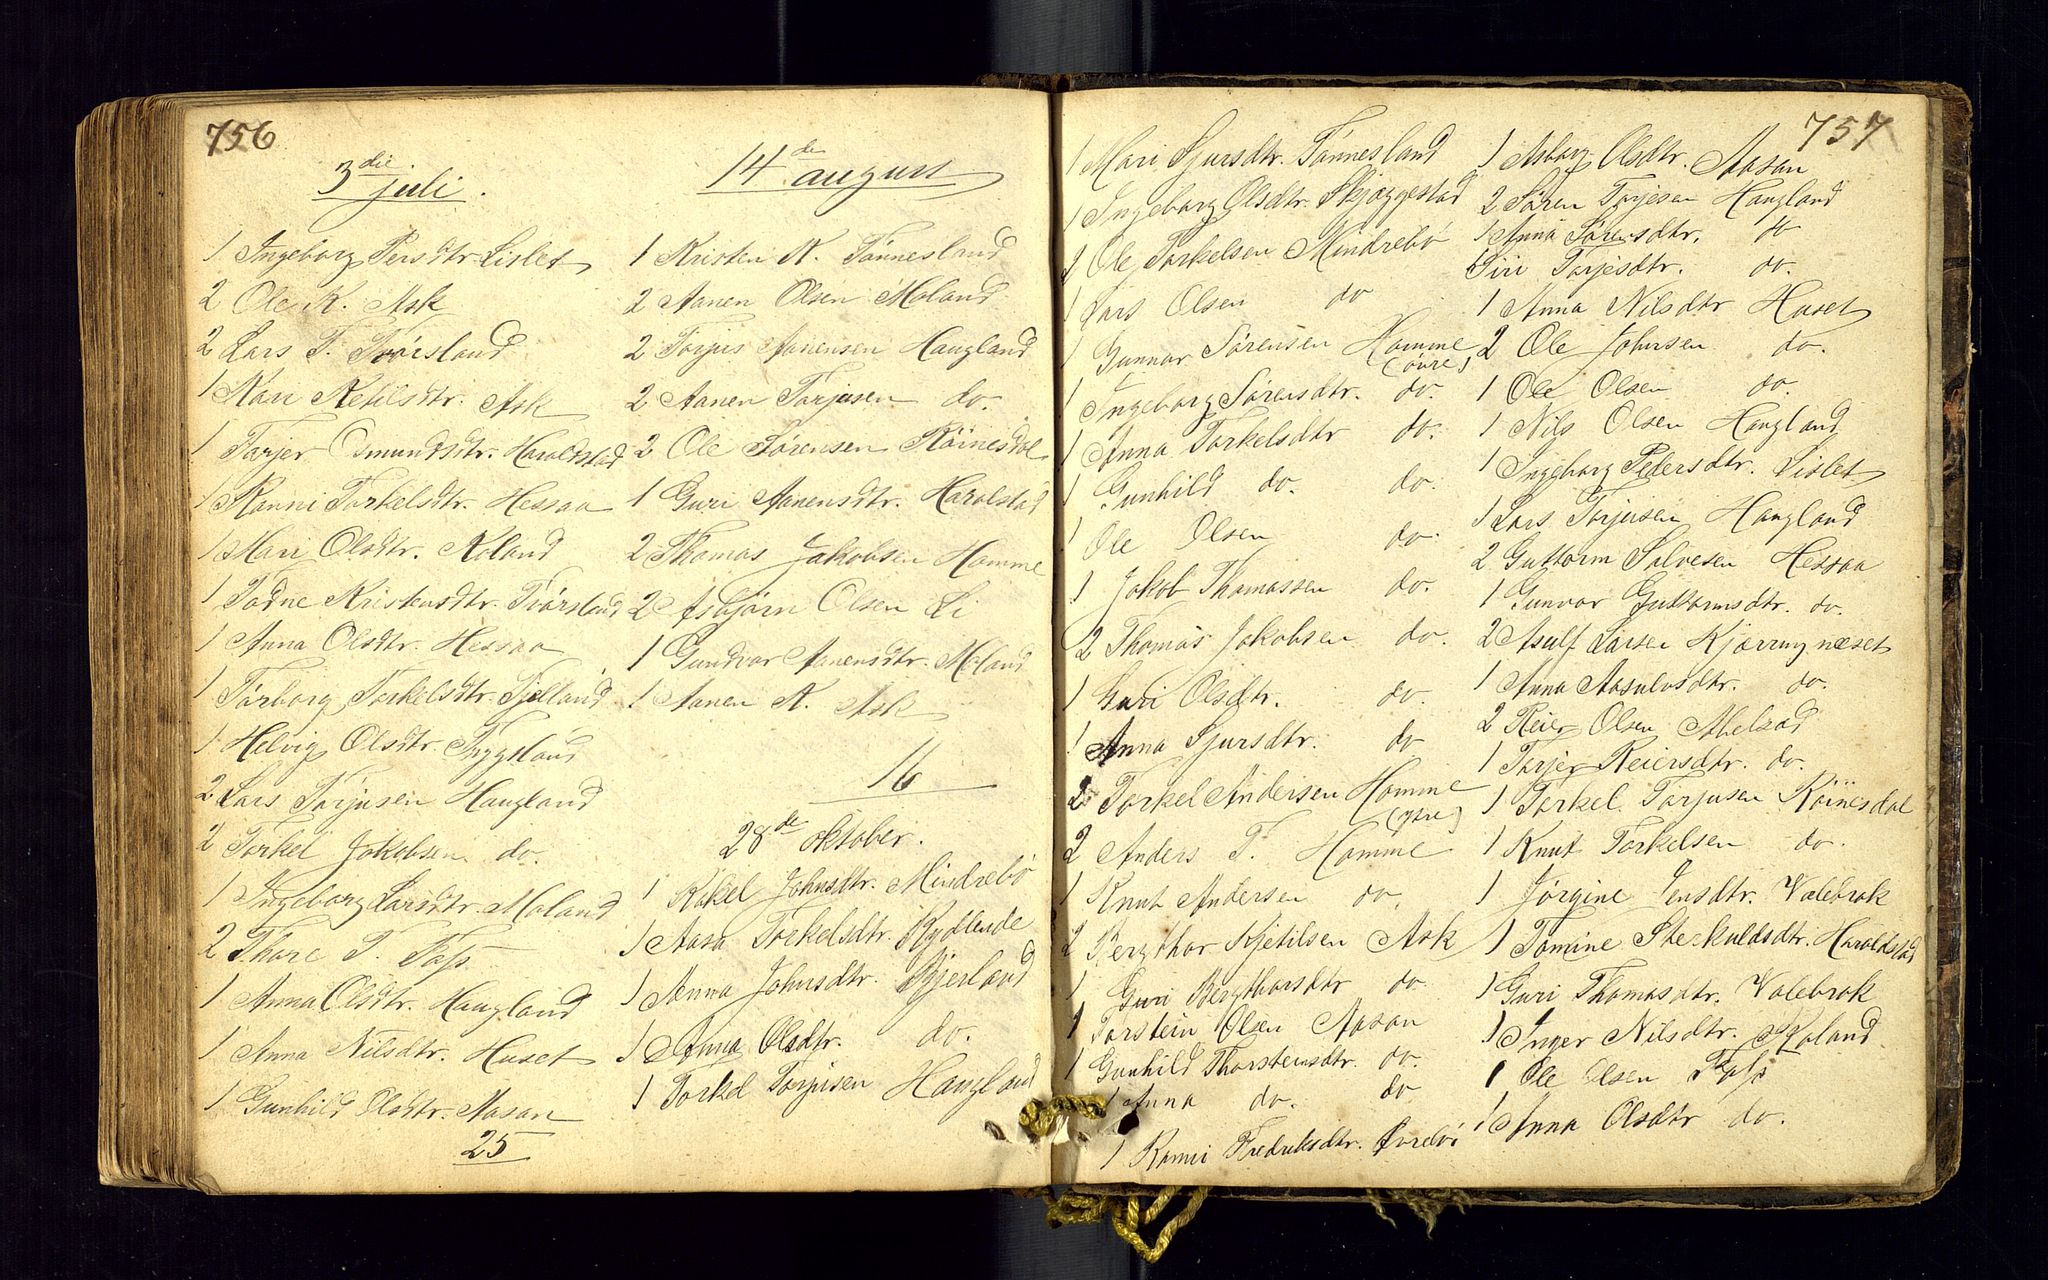 756
3die juli.
1 Ingeborg Persdtr. Lislet
2 Ole K. Ask
2 Lars T. Tvörsland
1 Kari Ketilsdtr. Ask
1 Torjer Osmundsdtr. Haraldstad
1 Ranni Torkelsdtr. Hessaa
1 Mari Olsdtr. Noland
1 Todne Kristensdtr. Tvörsland
1 Anna Olsdtr. Hessaa
1 Torborg Torkelsdtr. Tjelland
1 Helvig Olsdtr. Tryggland
2 Lars Torjusen Haugland
2 Torkel Jakobsen do.
1 Ingeborg Larsdtr. Moland
2 Thore T. Foss
1 Anna Olsdtr. Haugland
1 Anna Nilsdtr. Huset
1 Gunhild Olsdtr. Aasan
25
14de august
1 Kristen K. Tönnesland
2 Aanen Olsen Moland
2 Torjus Aanensen Haugland
2 Aanen Torjusen do.
2 Ole Sørensen Röinesdal
1 Guri Aanensdtr. Haralstad
2 Thomas Jakobsen Homme
2 Asbjörn Olsen Li
1 Gundvor Aanensdtr. Moland
1 Aanen K. Ask
16
28de oktober.
1 Rakel Johnsdtr. Mindrebö
1 Aasa Torkelsdtr. Rydlende
1 Anna Johnsdtr. Bjerland
1 Anna Olsdtr. do.
1 Torkel Torjusen Haugland
757
1 Mari Sjursdtr. Tönnesland
1 Ingeborg Olsdtr. Skjæggestad
2 Ole Torkelsen Mindrebö
1 Lars Olsen do
1 Gunnar Sørensen Homme
(övre)
1 Ingeborg Sörensdtr. do.
1 Anna Torkelsdtr do.
1 Gunhild do. do.
1 Ole Olsen do.
1 Jakob Thomassen do.
2 Thomas Jakobsen do.
1 Guri Olsdtr. do.
1 Anna Sjursdtr. do
2 Torkel Andersen Homme
(ytre)
2 Anders T. Homme
1 Knut Andersen do.
2 Bergthor Kjetilsen Ask
1 Guri Bergthorsdtr do
1 Torstein Olsen Aasan
1 Gunhild Thorsteinsdtr. do.
1 Anna do. do
1 Ranni Fredriksdtr. Øvrebö
1 Asborg Olsdtr. Aasan
2 Sören Torjesen Haugland
1 Anna Sörensdtr. do
1 Siri Torjesdtr. do.
1 Anna Nilsdtr Huset
2 Ole Johnsen do.
1 Ole Olsen do.
1 Nils Olsen Haugland
1 Ingeborg Pedersdtr. Lislet
1 Lars Torjusen Haugland
2 Guttorm Salvesen Hessaa
1 Gunvor Guttormsdtr. do.
2 Asulf Larsen Kjærringnæset
1 Anna Aasulvsdtr. do.
2 Reier Olsen Abelsad
1 Torjer Reiersdtr. do.
1 Torkel Torjusen Röinesdal
1 Knut Torkelsen do.
1 Jørgine Jensdtr. Valebrok
1 Tomine Sterkuldsdtr. Haraldstad
1 Guri Thomasdtr. Valebrok
1 Inger Nilsdtr. Noland
1 Ole Olsen Foss
1 Anna Olsdtr do.